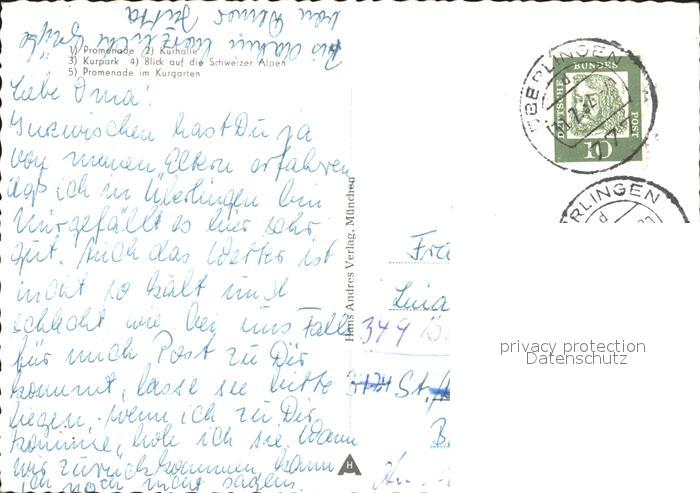 von Deiner Jutta
Bis dahin herzliche Grüße
1) Promenade 2) Kurhalle
3) Kurpark 4) Blick auf die Schweizer Alpen
5) Promenade im Kurgarten
Liebe Oma!
Inzwischen hast Du ja
von meinen Eltern erfahren
daß ich in Überlingen bin
Mir gefällt es hier sehr
gut. Auch das Wetter ist
nicht so kalt und
schlecht wie bei uns. Falls
für mich Post zu Dir
kommt, lasse sie bitte
liegen, wenn ich zu Dir
komme, hole ich sie. Wann
wir zurückkommen, kann
ich noch nicht sagen.
Hans Andres Verlag, München
A H
ÜBERLINGEN
DEUTSCHE BUNDES POST
10
ERLINGEN
d
Fra
Lina
349
St.
privacy protection
Datenschutz